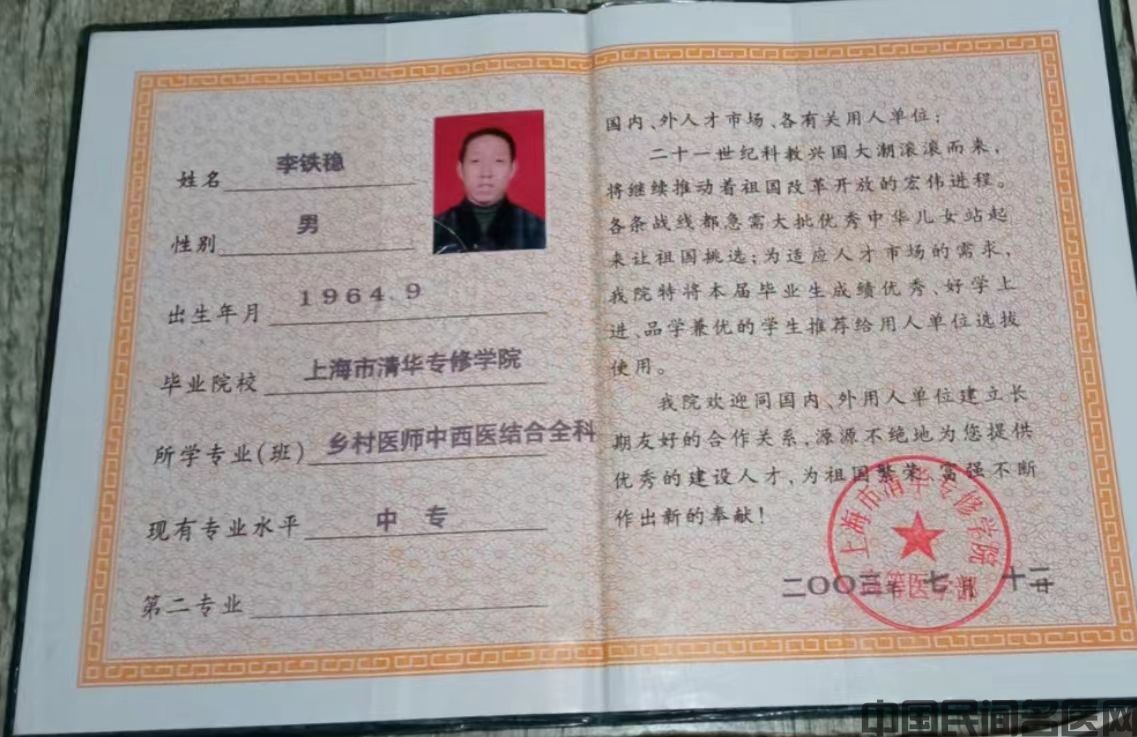 姓名 李铁稳
性别 男
出生年月 1964.9
毕业院校 上海市清华专修学院
所学专业(班) 乡村医师中西医结合全科
现有专业水平 中专
第二专业
国内、外人才市场、各有关用人单位:
二十一世纪科教兴国大潮滚滚而来,
将继续推动着祖国改革开放的宏伟进程。
各条战线都急需大批优秀中华儿女站起
来让祖国挑选;为适应人才市场的需求,
我院特将本届毕业生成绩优秀、好学上
进、品学兼优的学生推荐给用人单位选拔
使用。
我院欢迎同国内、外用人单位建立长
期友好的合作关系,源源不绝地为您提供
优秀的建设人才,为祖国繁荣、富强不断
作出新的奉献!
上海市清华专修学院
二〇〇三年七月十二日
中国民间名医网